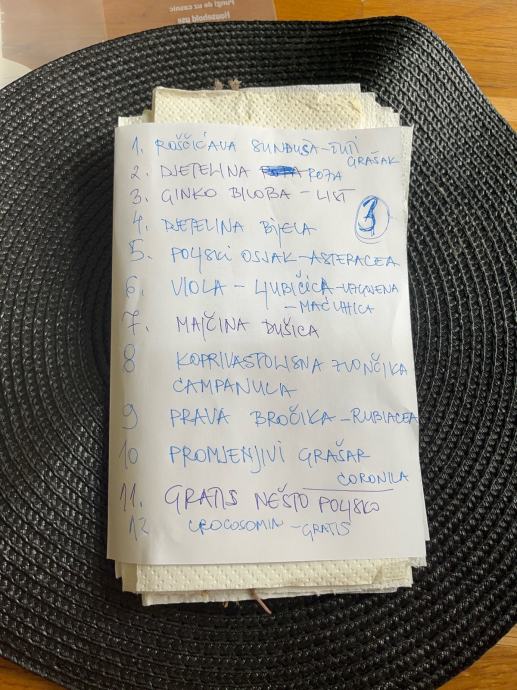 Fungi de uz casnic
Household use
1. ROŠČIĆAVA SUNDUŠA-ŽUTI
GRAŠAK
2. DJETELINA ROZA
3. GINKO BILOBA - LIST
3
4. DJETELINA BIJELA
5. POLJSKI OSJAK-ASTERACEA
6. VIOLA - LJUBIČICA-UZGOJENA
- MAĆUHICA
7. MAJČINA DUŠICA
8 KOPRIVASTOLISNA ZVONČIKA
CAMPANULA
9 PRAVA BROČIKA-RUBIACEA
10 PROMJENJIVI GRAŠAR
CORONILA
11. GRATIS NEŠTO POLJSKO
12 CROCOSOMIN-GRATIS